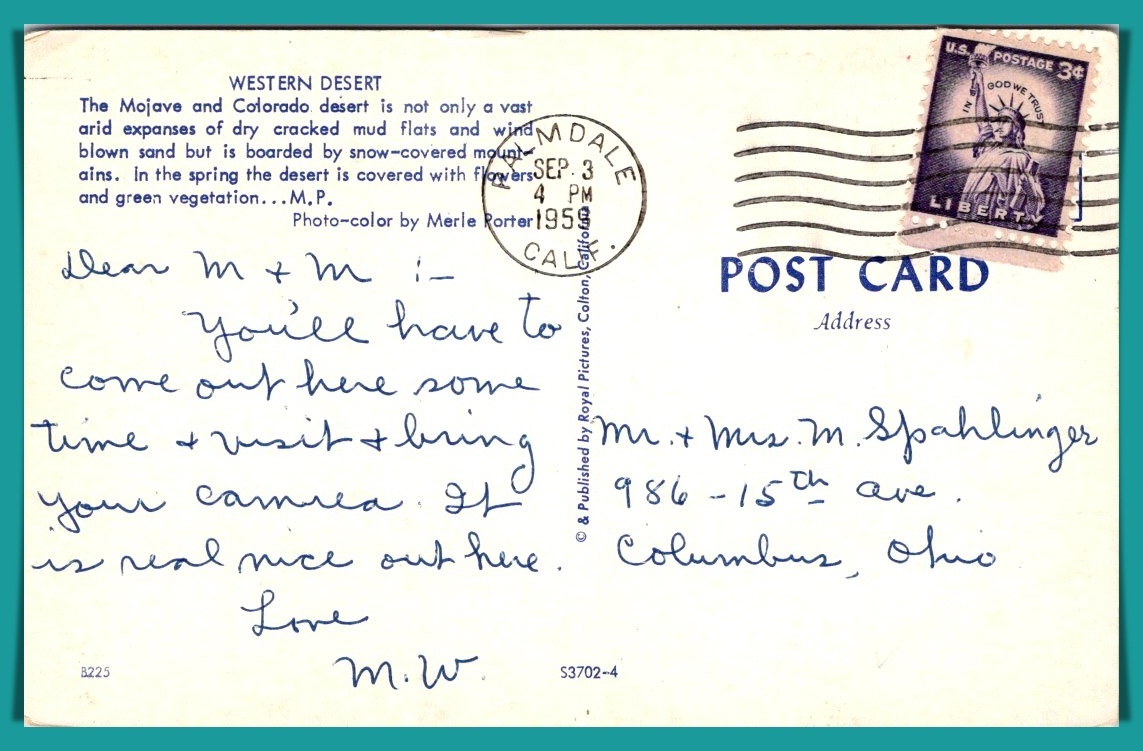 WESTERN DESERT
The Mojave and Colorado desert is not only a vast
arid expanses of dry cracked mud flats and wind
blown sand but is boarded by snow-covered mount-
ains. In the spring the desert is covered with flowers
and green vegetation...M.P.
Photo-color by Merle Porter
PALMDALE
SEP 3
4 PM
1959
CALIF.
U.S. POSTAGE 3¢
IN GOD WE TRUST
LIBERTY
Dear M + M :-
You'll have to
come out here some
time + visit + bring
your camrea. It
is real nice out here.
Love
M.W.
B225
© & Published by Royal Pictures, Colton, California
S3702-4
POST CARD
Address
Mr. + Mrs. M. Spahlinger
986 - 15th ave.
Columbus, Ohio